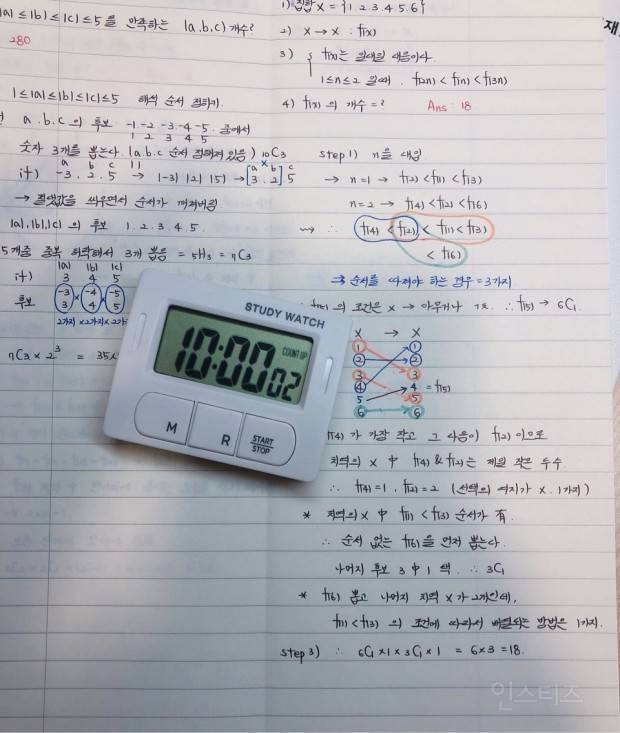 |a| ≤ |b| ≤ |c| ≤ 5 를 만족하는 (a.b.c) 개수?
280
1 ≤ |a| ≤ |b| ≤ |c| ≤ 5 해석 순서 정하기.
a. b. c 의 후보 -1 -2 -3 -4 -5 중에서
1 2 3 4 5
숫자 3개를 뽑는다. (a.b.c 순서 정해져 있음) 10C3
a b c
ex) -3. 2. 5 → |-3| |2| |5| → [3. 2] 5
→ 절댓값을 씌우면서 순서가
|a|, |b|, |c| 의 후보 1. 2. 3. 4. 5.
5개중 중복 허락해서 3개 뽑음 = 5H3 = 7C3
|a| |b| |c|
ex) 3 4 5
후보 -3 × -4 × -5
3 4 5
2가지 × 2가지 ×
7C3 × 2³ = 35×
STUDY WATCH
10:00 02
COUNT UP
M
R
START
STOP
1) 집합 X = {1. 2. 3. 4. 5. 6}
2) X → X : f(x)
3) f(x)는 일대일 대응이다.
1 ≤ n ≤ 2 일때. f(2n) < f(n) < f(3n)
4) f(x) 의 개수 = ?
Ans : 18
step 1) n을 대입
→ n=1 → f(2) < f(1) < f(3)
n=2 → f(4) < f(2) < f(6)
∴ f(4) < f(2) < f(1) < f(3)
< f(6)
⇒ 순서를 따져야 하는 경우 = 3가지
의 조건은 X → 아무거나 ∴ f(5) → 6C1
X → X
1 1
2 2
3 3
4 4 = f(5)
5 5
6 6
f(4) 가 가장 작고 그 다음이 f(2) 이므로
치역의 X 中 f(4) & f(2)는 제일 작은 두수
∴ f(4)=1, f(2)=2 (선택의 여지가 X. 1가지)
* 치역의 X 中 f(1) < f(3) 순서가 有.
∴ 순서 없는 f(6)을 먼저 뽑는다.
나머지 후보 3 中 1 택. ∴ 3C1
* f(6) 뽑고 나머지 치역 X가 2개인데,
f(1) < f(3) 의 조건에 따라서 배열되는 방법은 1가지.
step 3) ∴ 6C1 × 1 × 3C1 × 1 = 6×3 = 18.
인스티즈